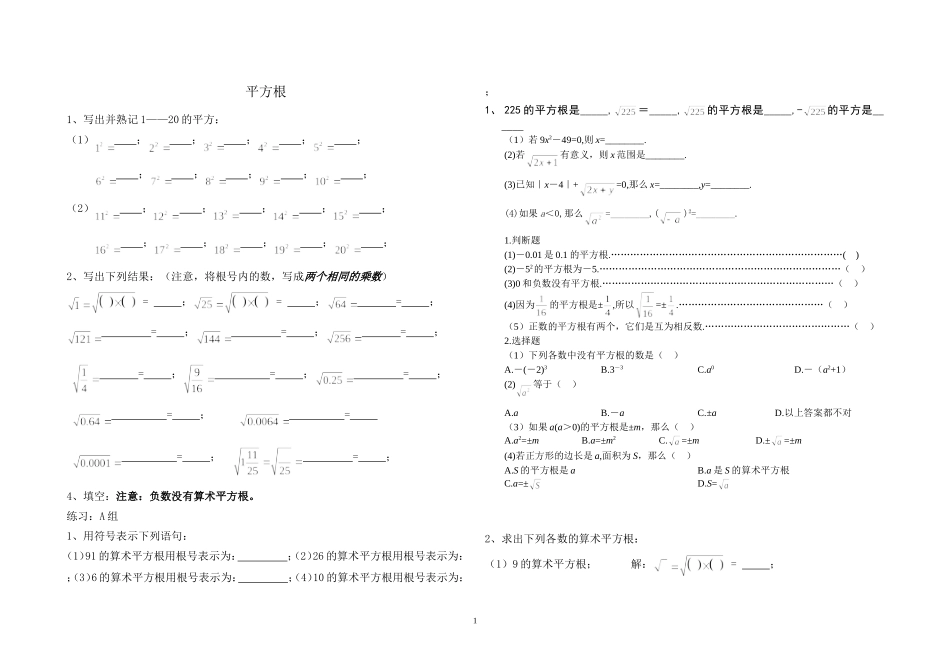 平方根
1、写出并熟记 1——20 的平方:
(1) 1²=____; 2²=____; 3²=____; 4²=____; 5²=____;
6²=____; 7²=____; 8²=____; 9²=____; 10²=____;
(2) 11²=____; 12²=____; 13²=____; 14²=____; 15²=____;
16²=____; 17²=____; 18²=____; 19²=____; 20²=____;
2、写出下列结果:(注意,将根号内的数,写成两个相同的乘数)
√1=√( )×( ) = _____; √25=√( )×( ) = _____; √64_______=_____;
√121_________=_____; √144_________=_____; √256_________=_____;
√(1/4)_______=_____; √(9/16)__________=_____; √0.25_________=_____;
√0.64__________=_____; √0.0064__________=______
√0.0001__________=_____; √(1 11/25)=√(/25)__________=_____;
4、填空:注意:负数没有算术平方根。
练习:A 组
1、用符号表示下列语句:
(1)91 的算术平方根用根号表示为:_________;(2)26 的算术平方根用根号表示为:
;(3)6 的算术平方根用根号表示为:_________;(4)10 的算术平方根用根号表示为:
;
1、 225 的平方根是_____, √225 =_____, √225 的平方根是_____,-√225 的平方是__
____
(1)若 9x²-49=0,则 x=________.
(2)若 √2x+1 有意义，则 x 范围是________.
(3)已知｜x-4｜+√2x+y =0,那么 x=________,y=________.
(4)如果 a<0,那么 √a² =________,(√-a )²=________.
1.判断题
(1)-0.01 是 0.1 的平方根.………………………………………………………………( )
(2)-5²的平方根为-5.…………………………………………………………………( )
(3)0 和负数没有平方根.………………………………………………………………( )
(4)因为 1/16 的平方根是±1/4,所以 √(1/16) =±1/4.………………………………………( )
（5）正数的平方根有两个，它们是互为相反数.………………………………………( )
2.选择题
（1）下列各数中没有平方根的数是（ ）
A.-(-2)³ B.3⁻³ C.a⁰ D.-（a²+1）
(2)√a² 等于（ ）
A.a B.-a C.±a D.以上答案都不对
（3）如果 a(a＞0)的平方根是±m，那么（ ）
A.a²=±m B.a=±m² C.√a =±m D.±√a =±m
(4)若正方形的边长是 a,面积为 S，那么（ ）
A.S 的平方根是 a B.a 是 S 的算术平方根
C.a=±√S D.S=√a
2、求出下列各数的算术平方根;
(1) 9 的算术平方根; 解:√ =√( )×( ) = _____;
1